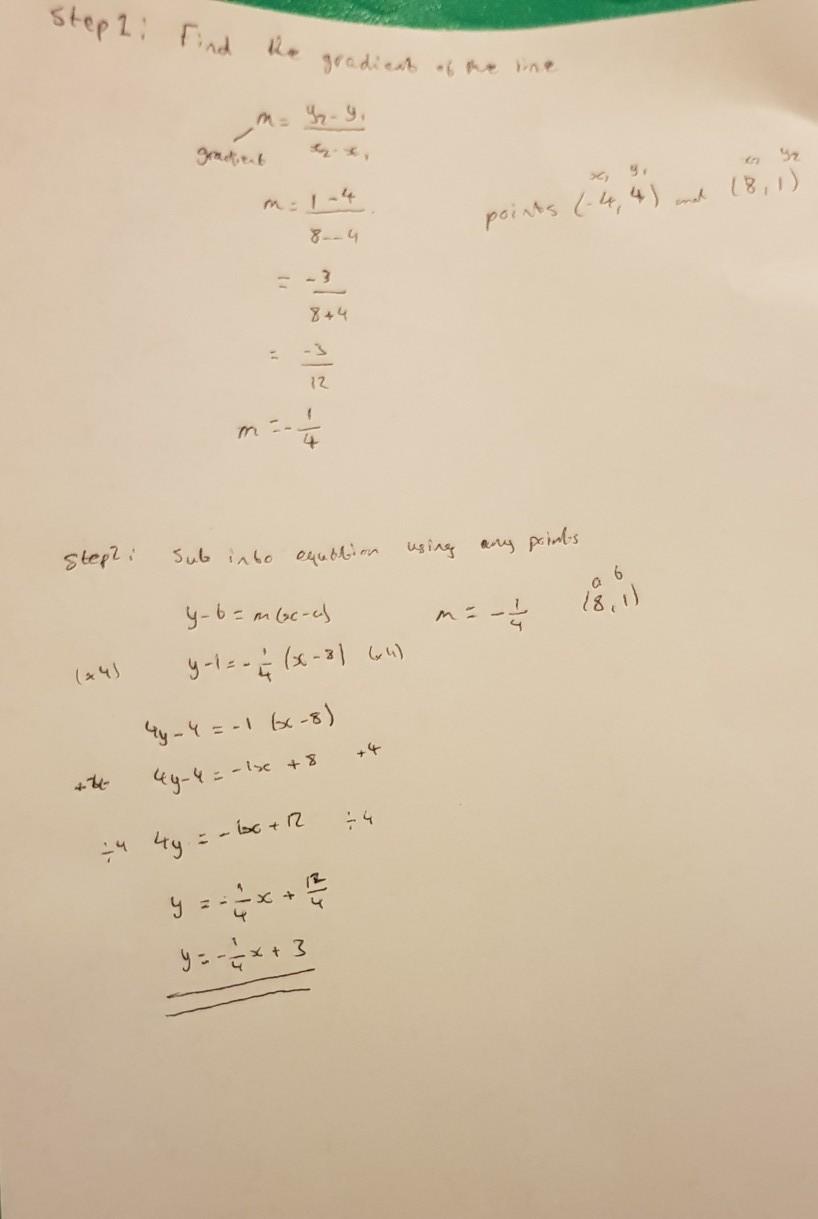 Step 1: Find the gradient of the line
m = y₂ - y₁ / x₂ - x₁
gradient
x₁ y₁ x₂ y₂
points (-4, 4) and (8, 1)
m = 1 - 4 / 8 - - 4
= -3 / 8+4
= -3 / 12
m = - 1/4
Step 2: Sub into equation using any points
a b
y - b = m(x-a) m = - 1/4 (8, 1)
(×4) y - 1 = - 1/4 (x - 8) (×4)
4y - 4 = -1 (x - 8)
4y - 4 = -1x + 8 +4
÷4 4y = -1x + 12 ÷4
y = - 1/4 x + 12/4
y = - 1/4 x + 3